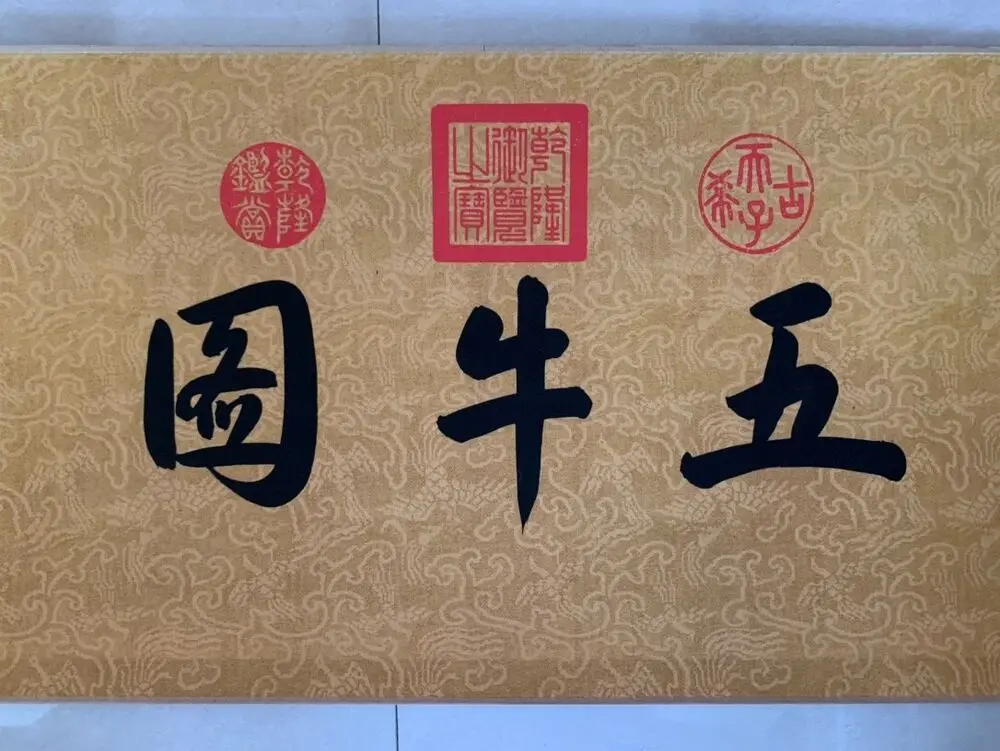 古希天子
乾隆御覽之寶
乾隆鑑賞
五牛圖